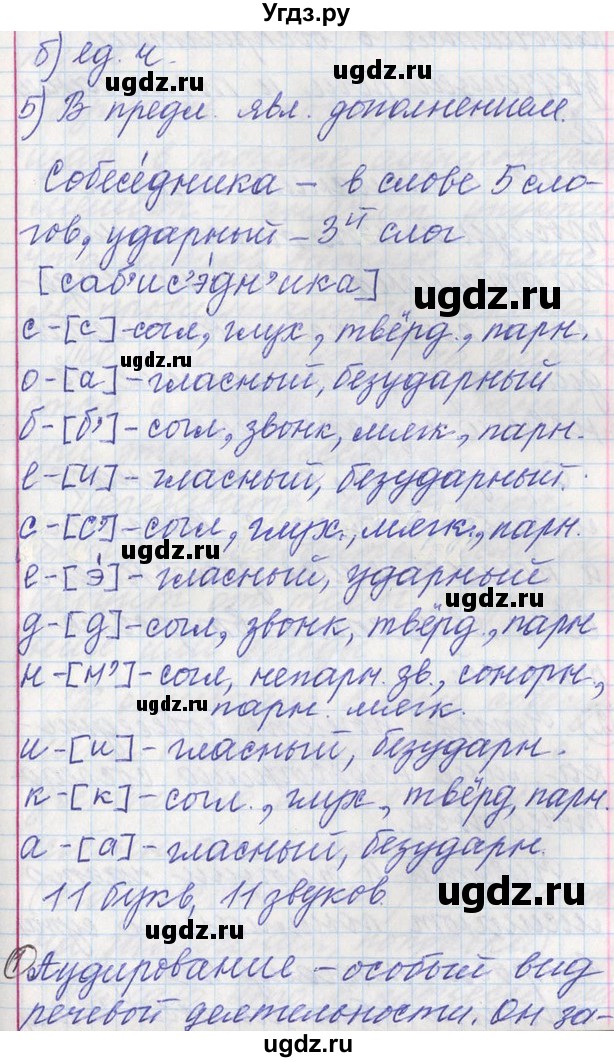 Угдз.ру
б) ед. ч.
5) В предл. явл. дополнением.
Собесе́дника – в слове 5 сло-
гов, ударный – 3ий слог
[саб'ис'э́дн'ика]
с – [с] – согл, глух, твёрд., парн.
о – [а] – гласный, безударный
б – [б'] – согл, звонк, мягк, парн.
е – [и] – гласный, безударный.
с – [с'] – согл, глух., мягк., парн.
е – [э́] – гласный, ударный
д – [д] – согл, звонк, твёрд., парн
н – [н'] – согл, непарн. зв., сонорн,
парн. мягк.
и – [и] – гласный, безударн.
к – [к] – согл., глух, твёрд, парн
а – [а] – гласный, безударн.
11 букв, 11 звуков.
① Аудирование – особый вид
речевой деятельности. Он за-
ugdz.ru
ugdz.ru
ugdz.ru
ugdz.ru
ugdz.ru
ugdz.ru
ugdz.ru
ugdz.ru
ugdz.ru
ugdz.ru
ugdz.ru
ugdz.ru
ugdz.ru